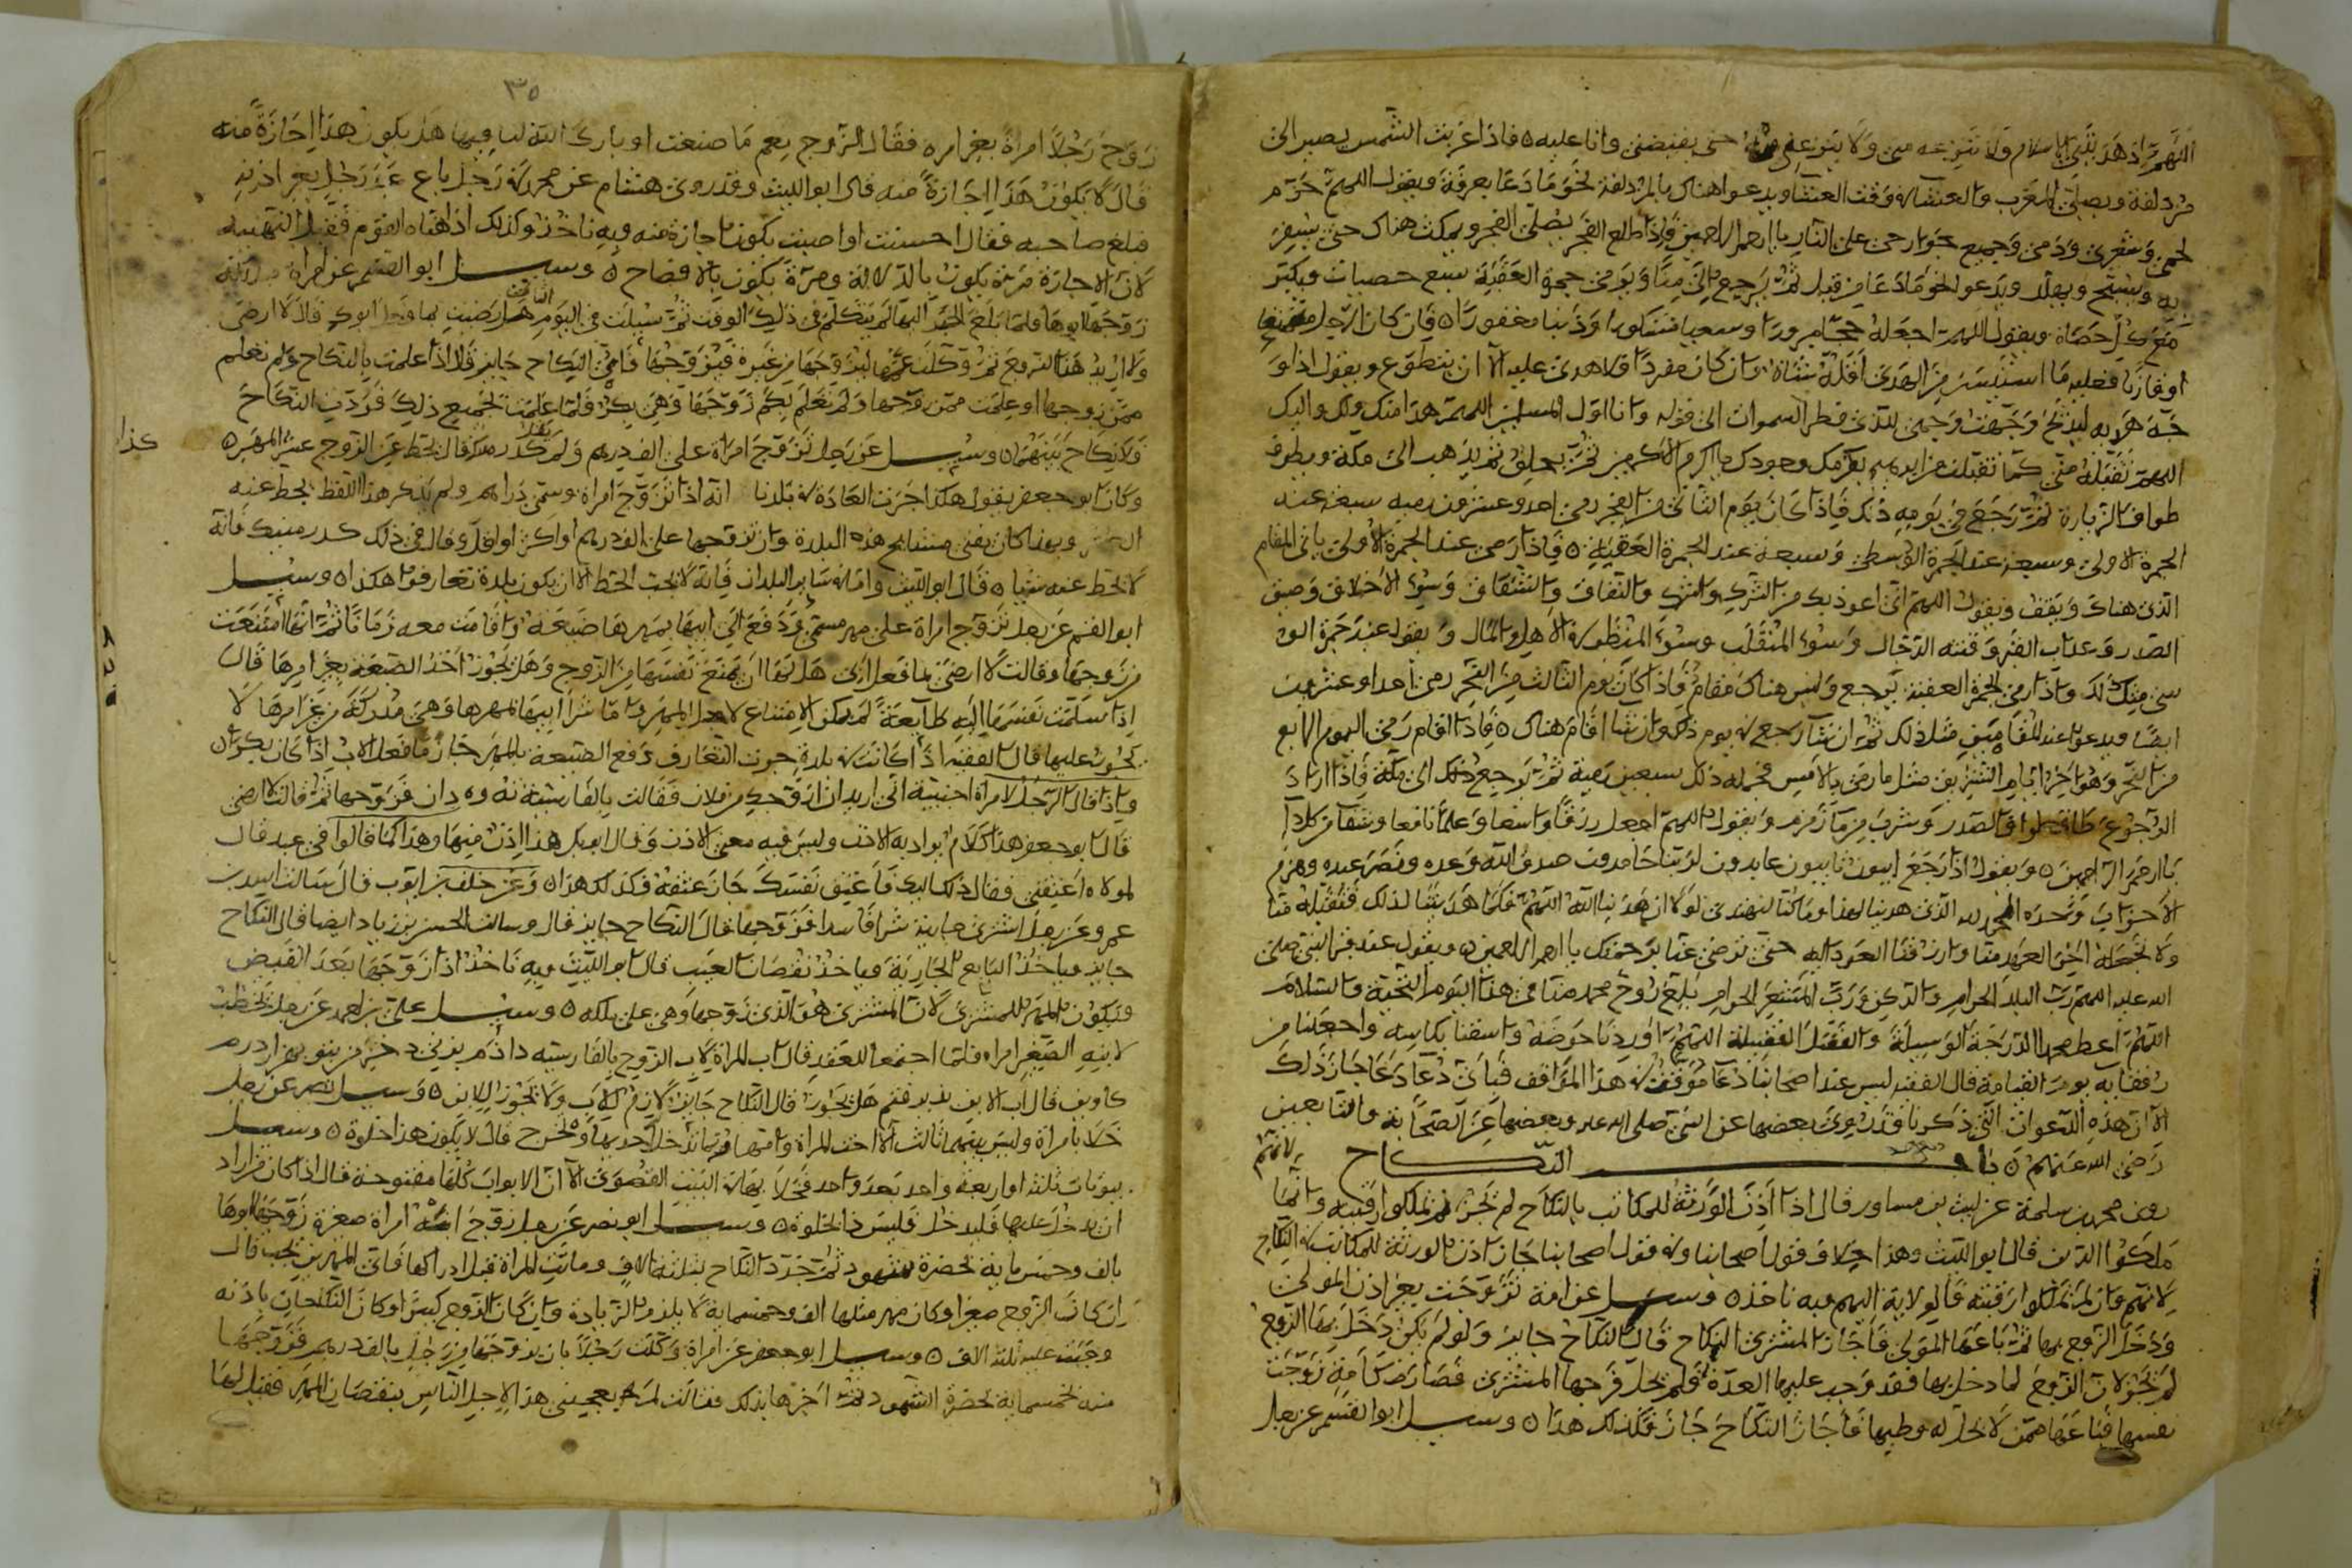 اللهم اذ هديتني للاسلام ولا تنزعه مني ولا تنزعني حتى يقبضني وانا عليه ه فاذا غربت الشمس يصير الى
مزدلفة ويصلي المغرب والعشاء في وقت العشا ويدعوا هناك بالمزدلفة نحو ما دعا بعرفة ويقول اللهم حرم
لحمي وشعري ودمي وجميع جوارحي على النار يا ارحم الراحمين فاذا طلع الفجر يصلي الفجر ويمكث هناك حتى يسفر
به ويسبح ويهلل ويدعو نحو ما دعا من قبل ثم يرجع الى منى ويرمي جمرة العقبة سبع حصيات ويكبر
مع كل حصاة ويقول اللهم اجعله حجا مبرورا وسعيا مشكورا وذنبا مغفورا ه فان كان الرجل متمتعا
او قارنا فعليه ما استيسر من الهدي اقله شاة وان كان مفردا فلا هدي عليه الا ان يتطوع ويقول اذا
وجهت وجهي للذي فطر السموات الى قوله وانا اول المسلمين اللهم هذا منك ولك واليك
اللهم تقبله مني كما تقبلت من ابرهيم بكرمك وجودك يا اكرم الاكرمين ثم يحلق ثم يذهب الى مكة ويطوف
طواف الزيارة ثم يرجع في يومه ذلك فاذا كان يوم الثاني من النحر رمى احد وعشرون رميه سبعة عند
الجمرة الاولى وسبعة عند الجمرة الوسطى وسبعة عند الجمرة العقبة ه فاذا رمى عند الجمرة الاولى ياتي المقام
الذي هناك ويقف ويقول اللهم اني اعوذ بك من الشرك والشك والنفاق والشقاق وسوء الاخلاق وضيق
الصدر وعذاب القبر وفتنه الدجال وسوء المنقلب وسوء المنظر في الاهل والمال ويقول عند جمرة
واذا رمى الجمرة العقبة يرجع وليس هناك مقام فاذا كان يوم الثالث من النحر رمى احدا وعشرين
ايضا ويدعوا عند المقامين مثل ذلك ثم ان شا رجع في يوم ذلك وان شا اقام هناك ه فاذا اقام رمى اليوم الرابع
من النحر وهو اخر ايام التشريق مثل ما رمى بالامس فجمله ذلك سبعين رمية ثم يرجع الى مكة فاذا اراد
الرجوع طاف طواف الصدر وشرب من ما زمزم ويقول اللهم اجعله رزقا واسعا وعلما نافعا وشفا من كل دا
يا ارحم الراحمين ه ويقول اذا رجع ايبون تايبون عابدون لربنا حامدون صدق الله وعده ونصر عبده وهزم
الاحزاب وحده الحمد لله الذي هدينا لهذا وما كنا لنهتدي لولا ان هدينا الله اللهم فكما هديتنا لذلك فتقبله منا
ولا تجعله اخر العهد منا وارزقنا العود اليه حتى ترضى عنا برحمتك يا ارحم الراحمين ه ويقول عند قبر النبي صلى
الله عليه اللهم رب البلد الحرام والركن ورب المشعر الحرام بلغ روح محمد منا في هذا اليوم التحية والسلام
اللهم اعط محمدا الدرجة الوسيلة والفضل الفضيلة اللهم اوردنا حوضه واسقنا بكاسه واجعلنا من
رفقايه يوم القيامة قال الفقيه ليس عند اصحابنا دعا موقت في هذا المواقف فباي دعا دعا جاز ذلك
الا ان هذه الدعوات التي ذكرنا قد روي بعضها عن النبي صلى الله عليه وبعضها عن الصحابة والتابعين
رضي الله عنهم ه باب النكاح
روى محمد بن سلمة عن ليث بن مساور قال اذا اذن الورثة للمكاتب بالنكاح لم يجز لانهم لم يملكوا رقبته وانما
ملكوا الدين قال ابو الليث وهذا خلاف قول اصحابنا وفي قول اصحابنا جاز اذن الورثة للمكاتب في النكاح
لانهم وان لم يملكوا رقبته فالولاية اليهم وبه ناخذ ه وسيل عن امة تزوجت بغير اذن المولى
ودخل الزوج بها ثم باعها المولى فاجاز المشتري النكاح قال النكاح جايز ولو لم يكن دخل بها الزوج
لم يجز لان الزوج لما دخل بها فقد وجب عليها العدة فلم يحل فرجها المشتري فصارت كامة زوجت
نفسها فباعها ممن لا يحل له وطيها فاجاز النكاح جاز فكذلك هذا ه وسيل ابو القسم عن رجل
٣٥
زوج رجلا امراة بغير امره فقال الزوج نعم ما صنعت او بارك الله لنا فيها هل يكون هذا اجازة منه
قال لا يكون هذا اجازة منه قال ابو الليث وقد روى هشام عن محمد في رجل باع عبد رجل بغير اذنه
فبلغ صاحبه فقال احسنت او اصبت يكون اجازة منه وبه ناخذ وكذلك اذا هناه القوم فقبل التهنية
لان الاجازة مرة يكون بالدلالة ومرة يكون بالافصاح ه وسيل ابو القسم عن امراة
زوجها ابوها فلما بلغ الخبر اليها لم يتكلم في ذلك الوقت ثم سيلت في اليوم الثاني هل رضيت بما فعل ابوك قال لا ارضى
ولا اريد هذا الزوج ثم وكلت عمها ليزوجها من غيره فيزوجها فاي النكاح جايز قال اذا علمت بالنكاح ولم تعلم
ممن زوجها او علمت ممن زوجها ولم تعلم بكم زوجها وهي بكر فلما علمت بجميع ذلك فردت النكاح
فلا نكاح بينهما ه وسيل عن رجل تزوج امراة على الف درهم قال يحط عن الزوج عشر المهر ه
وكان ابو جعفر يقول هكذا جرت العادة في بلدنا انه اذا تزوج امراة وسمى دراهم ولم يذكر هذا اللفظ يحط عنه
وبهذا كان يفتي مشايخ هذه البلدة وان تزوجها على الف درهم او اكثر او اقل وقال في ذلك فانه
لا يحط عنه شيا ه قال ابو الليث واما في ساير البلدان فانه لا يجب الحط الا ان يكون بلدة تعارفوا هكذا ه وسيل
ابو القسم عن رجل تزوج امراة على مهر مسمى ودفع الى ابيها بمهرها ضيعة واقامت معه زمانا ثم انها امتنعت
من زوجها وقالت لا ارضى بما فعل ابي هل لها ان تمنع نفسها من الزوج وهل يجوز اخذ الضيعة بغير امرها قال
اذا سلمت نفسها اليه طايعة لم يمكن الامتناع لاجل المهر واما شرا ابيها لمهرها وهي مدركة من غير امرها لا
يجوز عليها قال الفقيه اذا كانت في بلدة جرت التعارف بدفع الضيعة بالمهر جاز ما فعل الاب اذا كان بكرا ه
واذا قال الرجل لامراة اجنبية اني اريد ان ازوجك من فلان فقالت بالفارسية تو به دان فزوجها ثم قالت لا ارضى
قال ابو جعفر هذا كلام يراد به الاذن وليس فيه معنى الاذن وقال ابو بكر هذا اذن منها وهذا كما قالوا في عبد قال
لمولاه اعتقني فقال ذلك اليك فاعتق نفسك جاز عتقه فكذلك هذا ه وعن خلف بن ايوب قال سالت اسد بن
عمرو عن رجل اشترى جارية شرا فاسدا فزوجها قال النكاح جايز قال وسالت الحسن بن زياد ايضا قال النكاح
جايز وياخذ البايع الجارية وياخذ نقصان العيب قال ابو الليث وبه ناخذ اذا زوجها بعد القبض
ويكون المهر للمشتري لان المشتري هو الذي زوجها وهي على ملكه ه وسيل علي بن احمد عن رجل يخطب
لابنه الصغير امراة فلما اجتمعا للعقد قال اب المراة لاب الزوج بالفارسية دادم
قال اب الابن بذيرفتم هل يجوز قال النكاح جايز لازم للاب ولا يجوز للابن ه وسيل نصير عن رجل
خلا بامراة وليس بينهما ثالث الا اخت المراة وامتها وربما تدخل احديهما وتخرج قال لا يكون هذا خلوة ه وسيل
بيوتات ثلثة او اربعة واحد بعد واحد فخلا بها في البيت القصوى الا ان الابواب كلها مفتوحة قال اذا كان من اراد
ان يدخل عليها فليدخل فليس ذا خلوة ه وسيل ابو نصر عن رجل زوج ابنه امراة صغيرة زوجها ابوها
بالف وخمس ماية بحضرة شهود ثم جدد النكاح بثلثة الاف وماتت المراة قبل ادراكها فاي المهرين يجب قال
ان كان الزوج صغيرا وكان مهر مثلها الف وخمسماية لا يلزم الزيادة وان كان الزوج كبيرا وكان النكاحان باذنه
وجبت عليه ثلثة الاف ه وسيل ابو جعفر عن امراة وكلت رجلا بان يزوجها من رجل بالف درهم فزوجها
منه بخمسماية بحضرة الشهود ثم اخبرها بذلك فقالت لم يعجبني هذا لاجل الناس بنقصان المهر فقيل لها
كذا